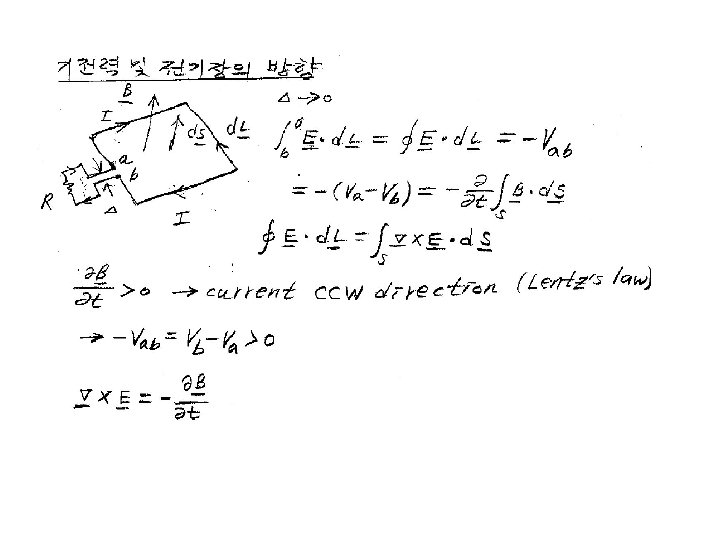 기전력 및 전기장의 방향
B
I
dS
dL
a
b
R
Δ
I
Δ → 0
∫_b^a E · dL = ∮ E · dL = -V_ab
= -(V_a - V_b) = -∂/∂t ∫_S B · dS
∮ E · dL = ∫_S ∇ × E · dS
∂B/∂t > 0 → current CCW direction (Lentz's law)
→ -V_ab = V_b - V_a > 0
∇ × E = -∂B/∂t